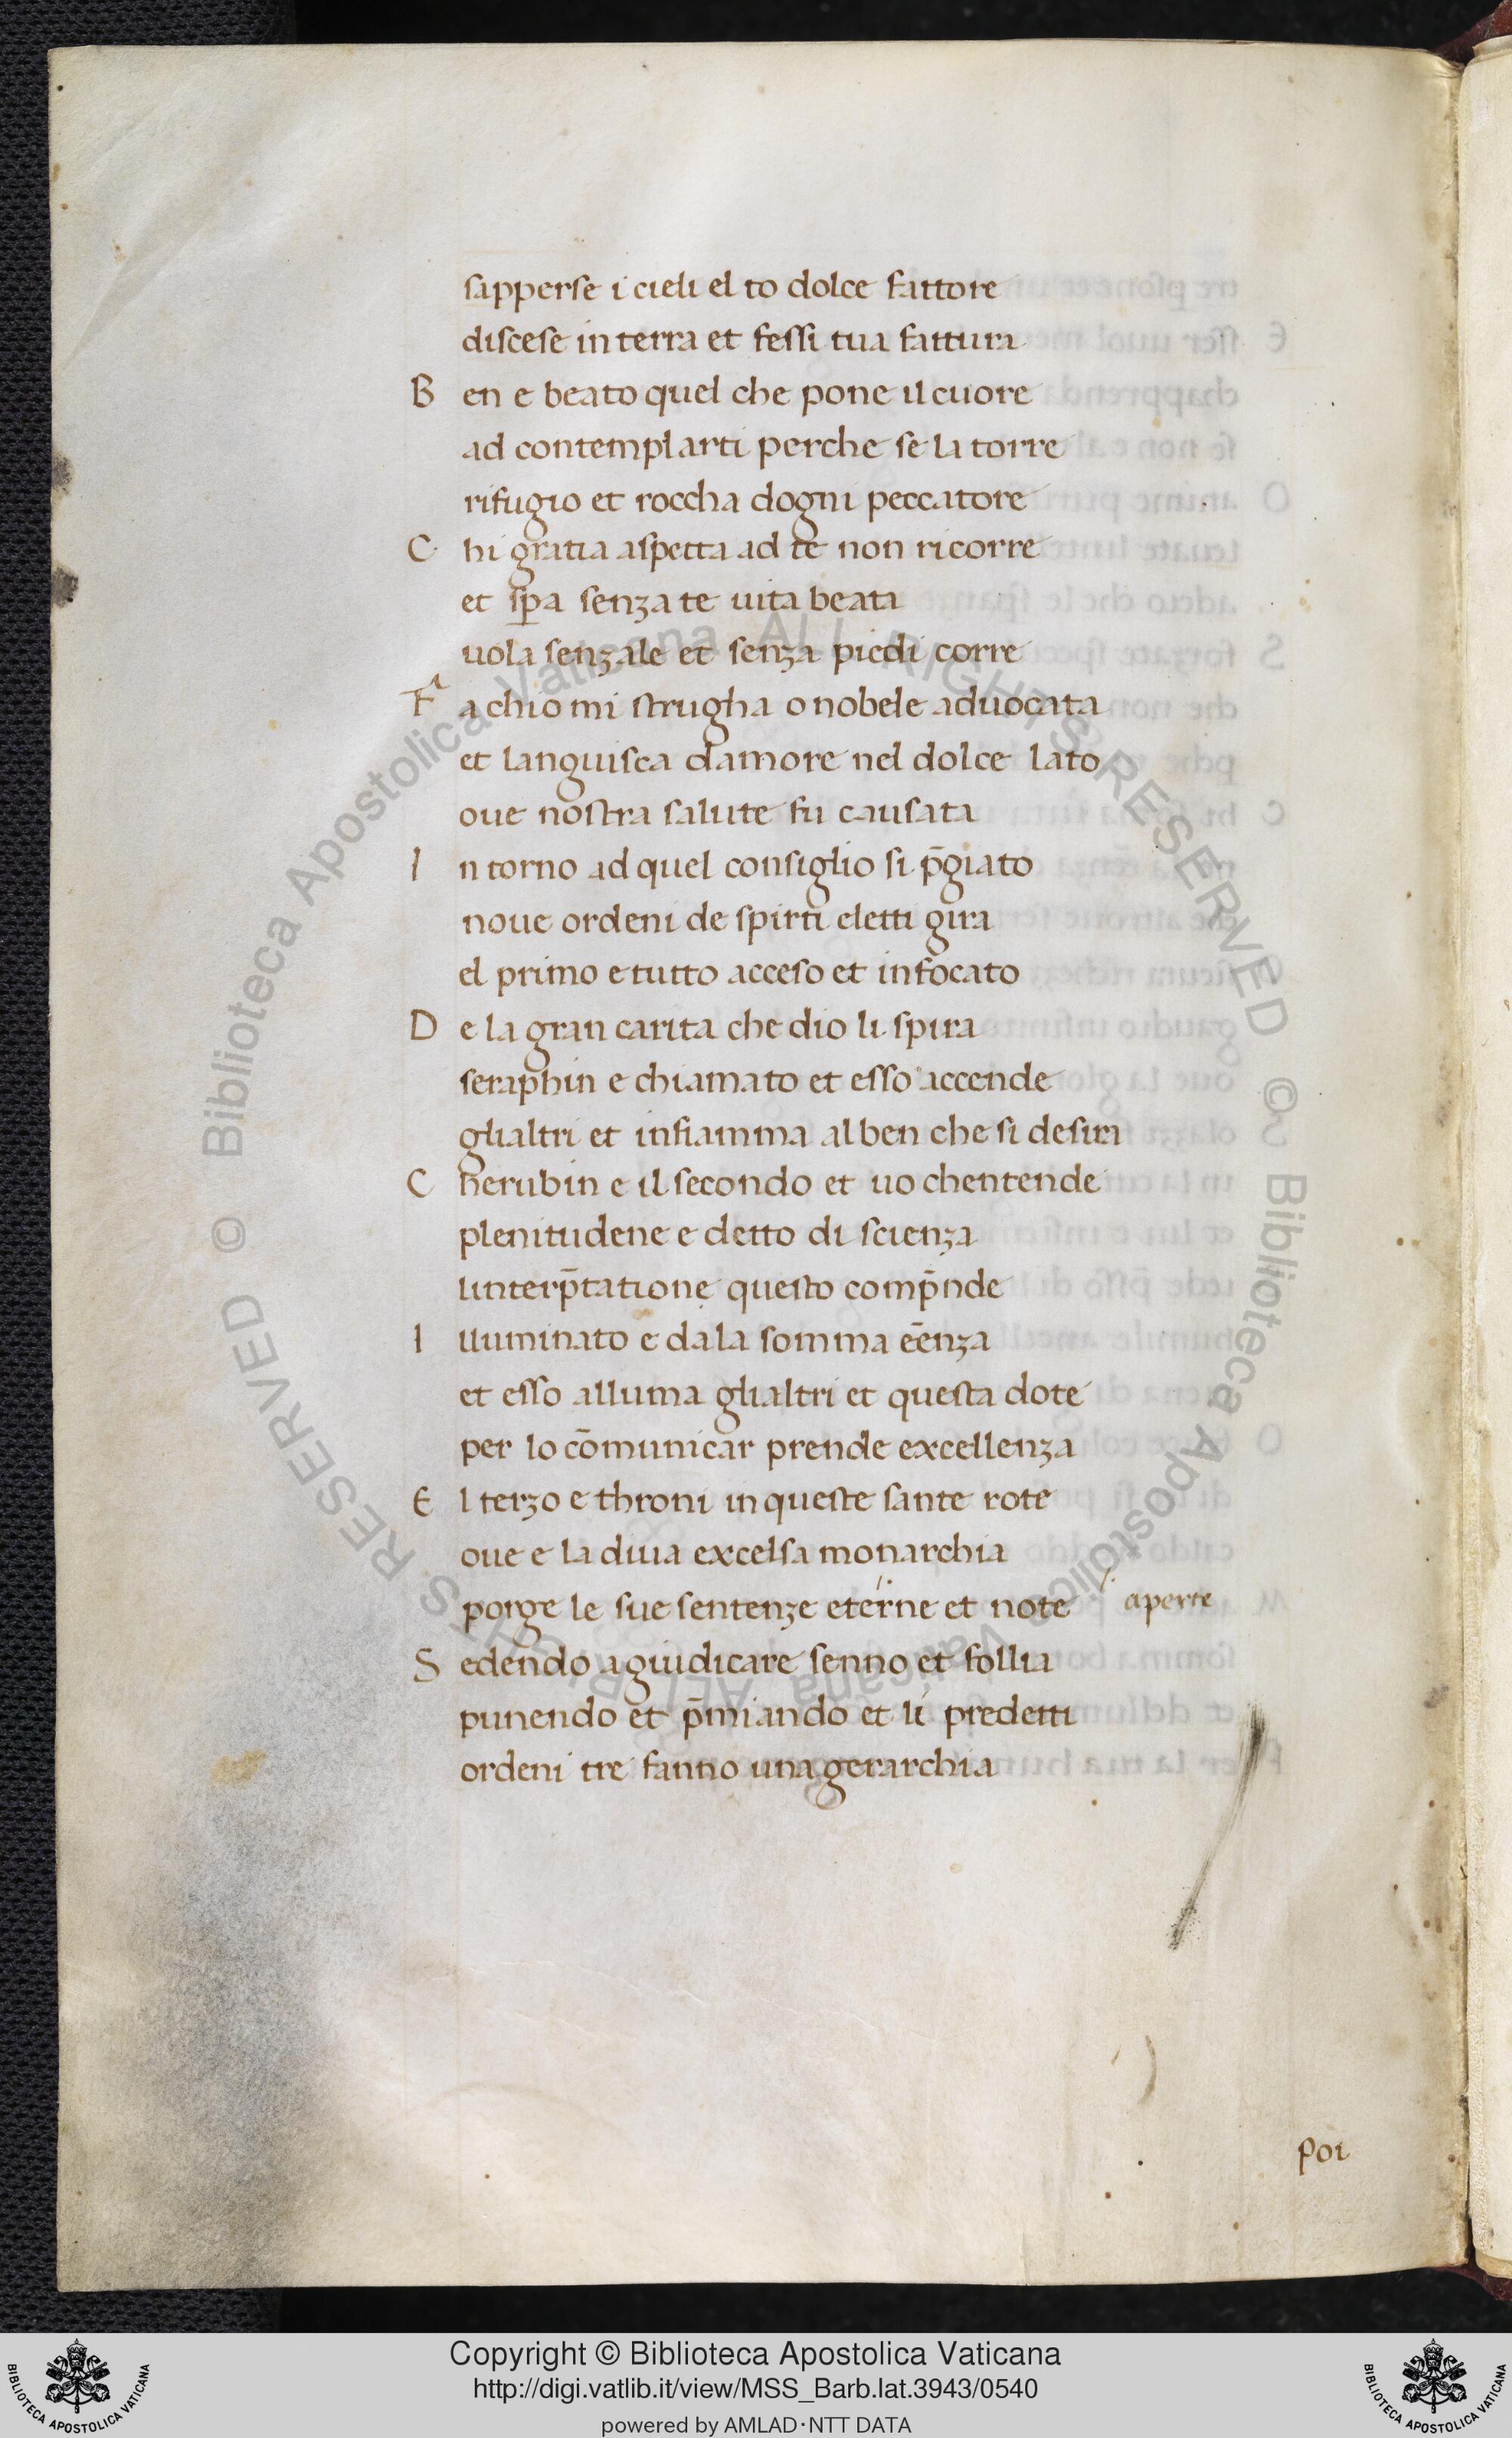 sapperse i cieli el to dolce fattore
discese in terra et fessi tua fattura
B en e beato quel che pone il cuore
ad contemplarti perche se la torre
rifugio et roccha dogni peccatore
C hi gratia aspetta ad te non ricorre
et sp̱a senza te uita beata
uola senzale et senza piedi corre
F a chio mi strugha o nobele aduocata
et languisca damore nel dolce lato
oue nostra salute fu causata
I n torno ad quel consiglio si p̄giato
noue ordeni de spirti eletti gira
el primo e tutto acceso et infocato
D e la gran carita che dio li spira
seraphin e chiamato et esso accende
glialtri et infiamma al ben che si desira
C herubin e il secondo et uo chentende
plenitudene e detto di scienza
linterp̄tatione questo comp̄nde
I lluminato e da la somma eēnza
et esso alluma glialtri et questa dote
per lo cōmunicar prende excellenza
E l terzo e throni in queste sante rote
oue e la diuia excelsa monarchia
porge le sue sentenze eterne et note aperte
S edendo a giudicare senno et follia
punendo et p̄miando et li predetti
ordeni tre fanno una gerarchia
poi
© Biblioteca Apostolica Vaticana ALL RIGHTS RESERVED © Biblioteca Apostolica Vaticana ALL RIGHTS RESERVED
BIBLIOTECA APOSTOLICA VATICANA
Copyright © Biblioteca Apostolica Vaticana
http://digi.vatlib.it/view/MSS_Barb.lat.3943/0540
powered by AMLAD·NTT DATA
BIBLIOTECA APOSTOLICA VATICANA